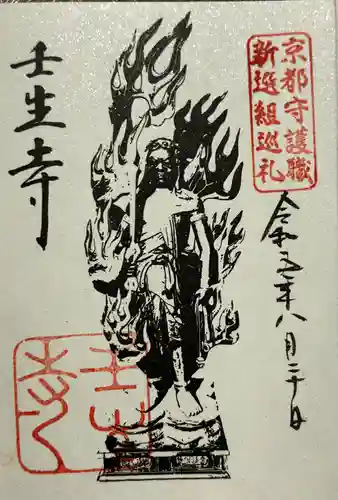 京都守護職
新選組巡礼
令和五年八月二十日
壬生寺
壬生
寺